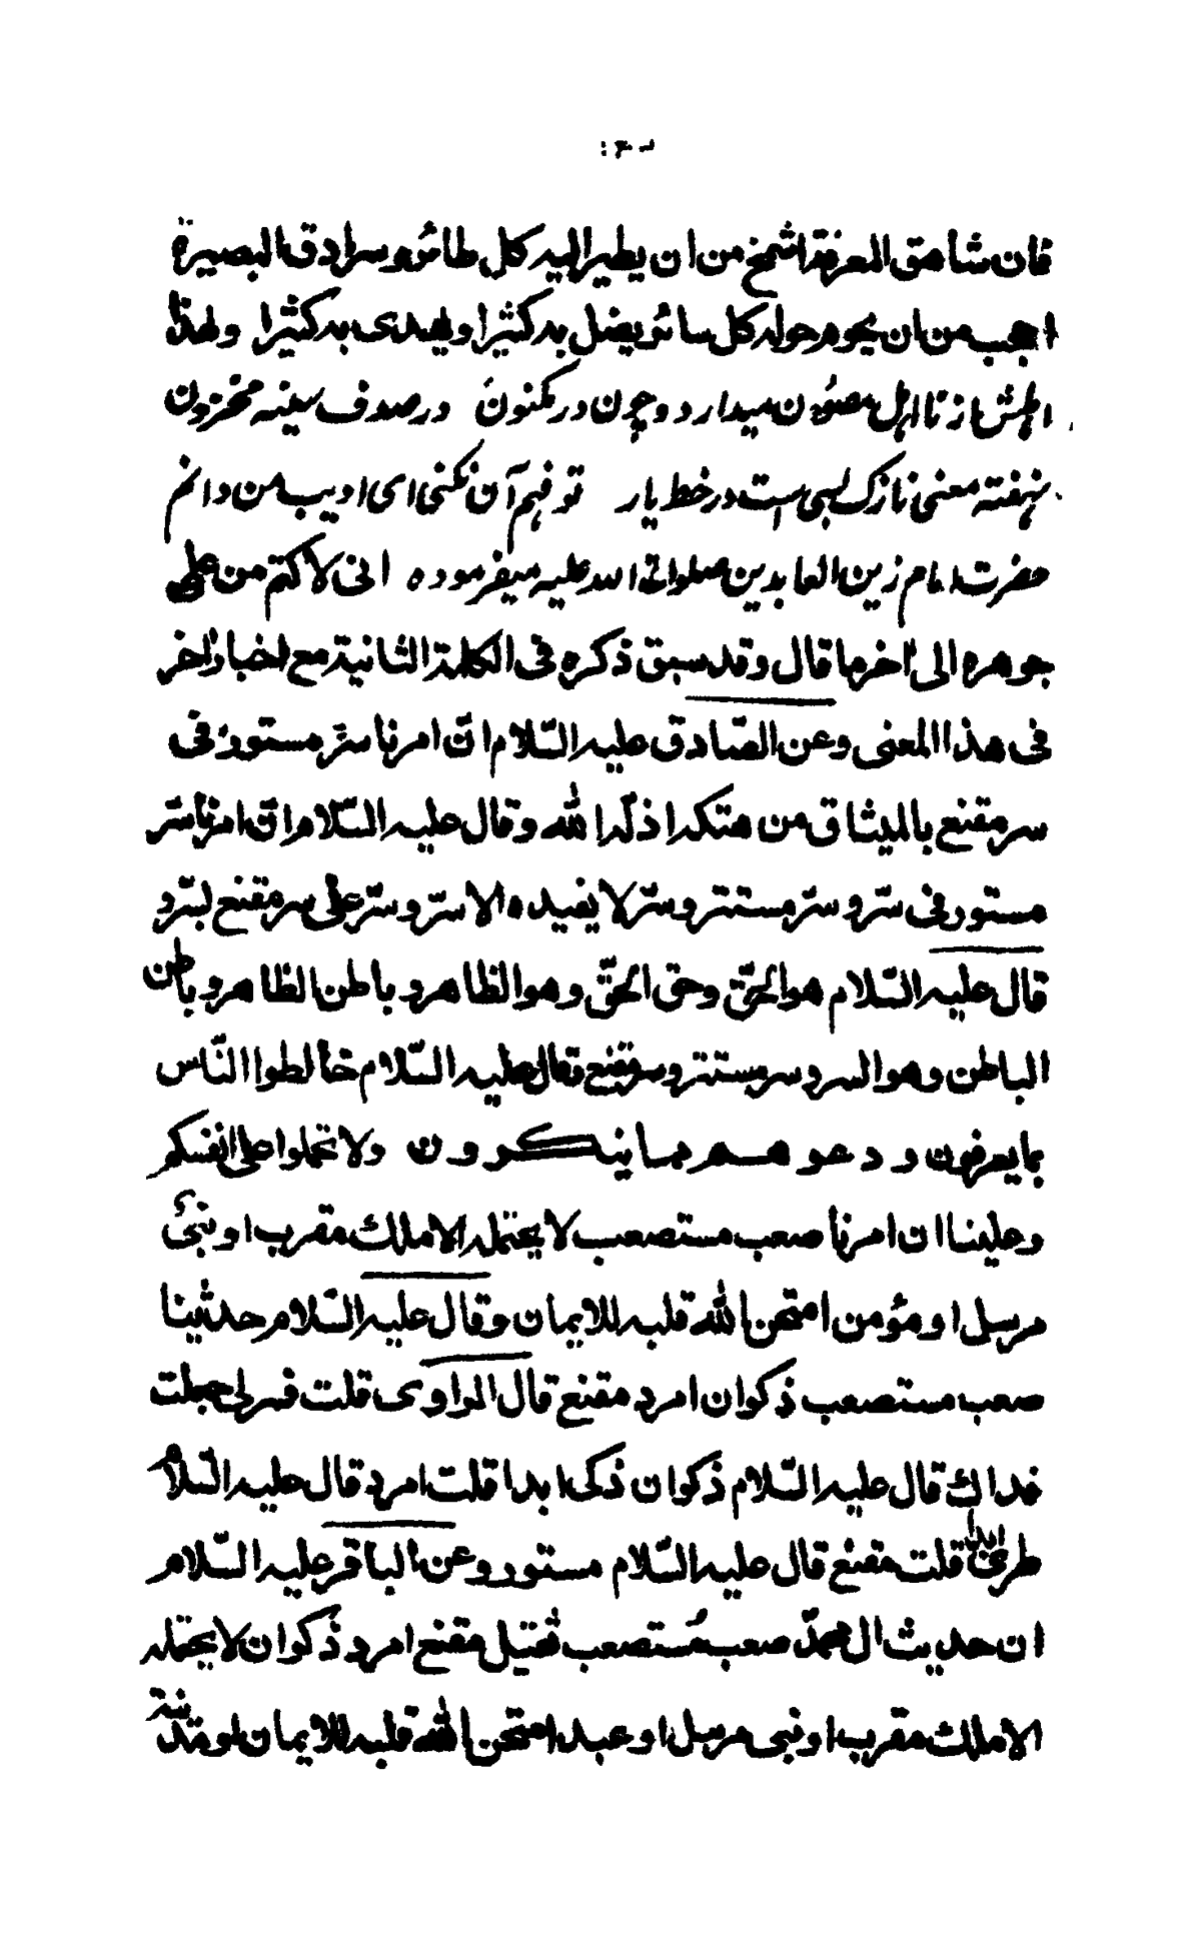 فان شاهق المعرفة اشمخ من ان يطير اليه كل طائر وسرادق البصيرة
احجب من ان يحوم حوله كل سائر يضل به كثيرا ويهدى به كثيرا ولهذا
اهلش از نا اهل مصون ميدارد و چون در مكنون در صدف سينه مخزون
نهفته معنى نازك بسى است در خط يار تو فهم آن نكنى اى اديب من دانم
حضرت امام زين العابدين صلوات الله عليه ميفرموده انى لاكتم من علمى
جوهره الى اخرها قال وقد سبق ذكره فى الكلمة الثانية مع اخبار اخر
فى هذا المعنى وعن الصّادق عليه السّلام انّ امرنا سرّ مستور فى
سر مقنع بالميثاق من هتكه اذلّه الله وقال عليه السّلام انّ امرنا سرّ
مستور فى سرّ وسرّ مستتر وسرّ لا يفيده الا سرّ وسرّ على سر مقنع بسرّ و
قال عليه السّلام هو الحقّ وحق الحقّ وهو الظاهر وباطن الظاهر وباطن
الباطن وهو السر وسر مستتر وسر مقنع وقال عليه السّلام خالطوا النّاس
بما يعرفون ودعوهم مما ينكرون ولا تحملوا على انفسكم
وعلينا ان امرنا صعب مستصعب لا يحتمله الا ملك مقرب او نبىّ
مرسل او مؤمن امتحن الله قلبه للايمان وقال عليه السّلام حديثنا
صعب مستصعب ذكوان امرد مقنع قال الراوى قلت فسر لى جعلت
فداك قال عليه السّلام ذكوان ذكى ابدا قلت امرد قال عليه السّلام
طرىّ ابدا قلت مقنع قال عليه السّلام مستور وعن الباقر عليه السّلام
ان حديث ال محمدّ صعب مُستصعب ثقيل مقنع امرد ذكوان لا يحتمله
الا ملك مقرب او نبى مرسل او عبد امتحن الله قلبه للايمان او مدينة